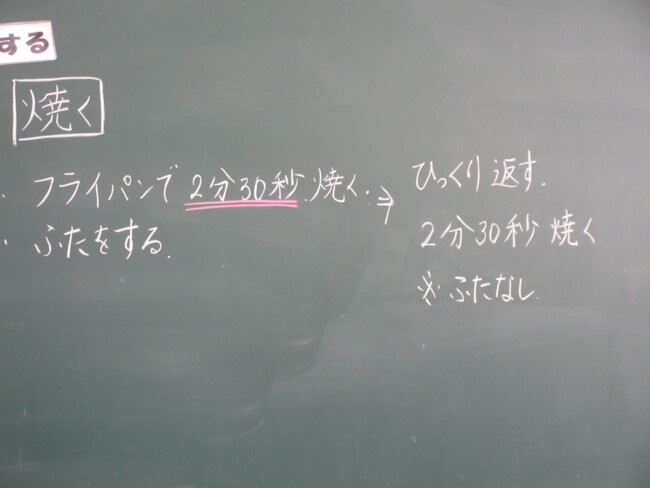 する
焼く
・フライパンで2分30秒焼く。⇒
・ふたをする。
ひっくり返す。
2分30秒焼く
※ふたなし